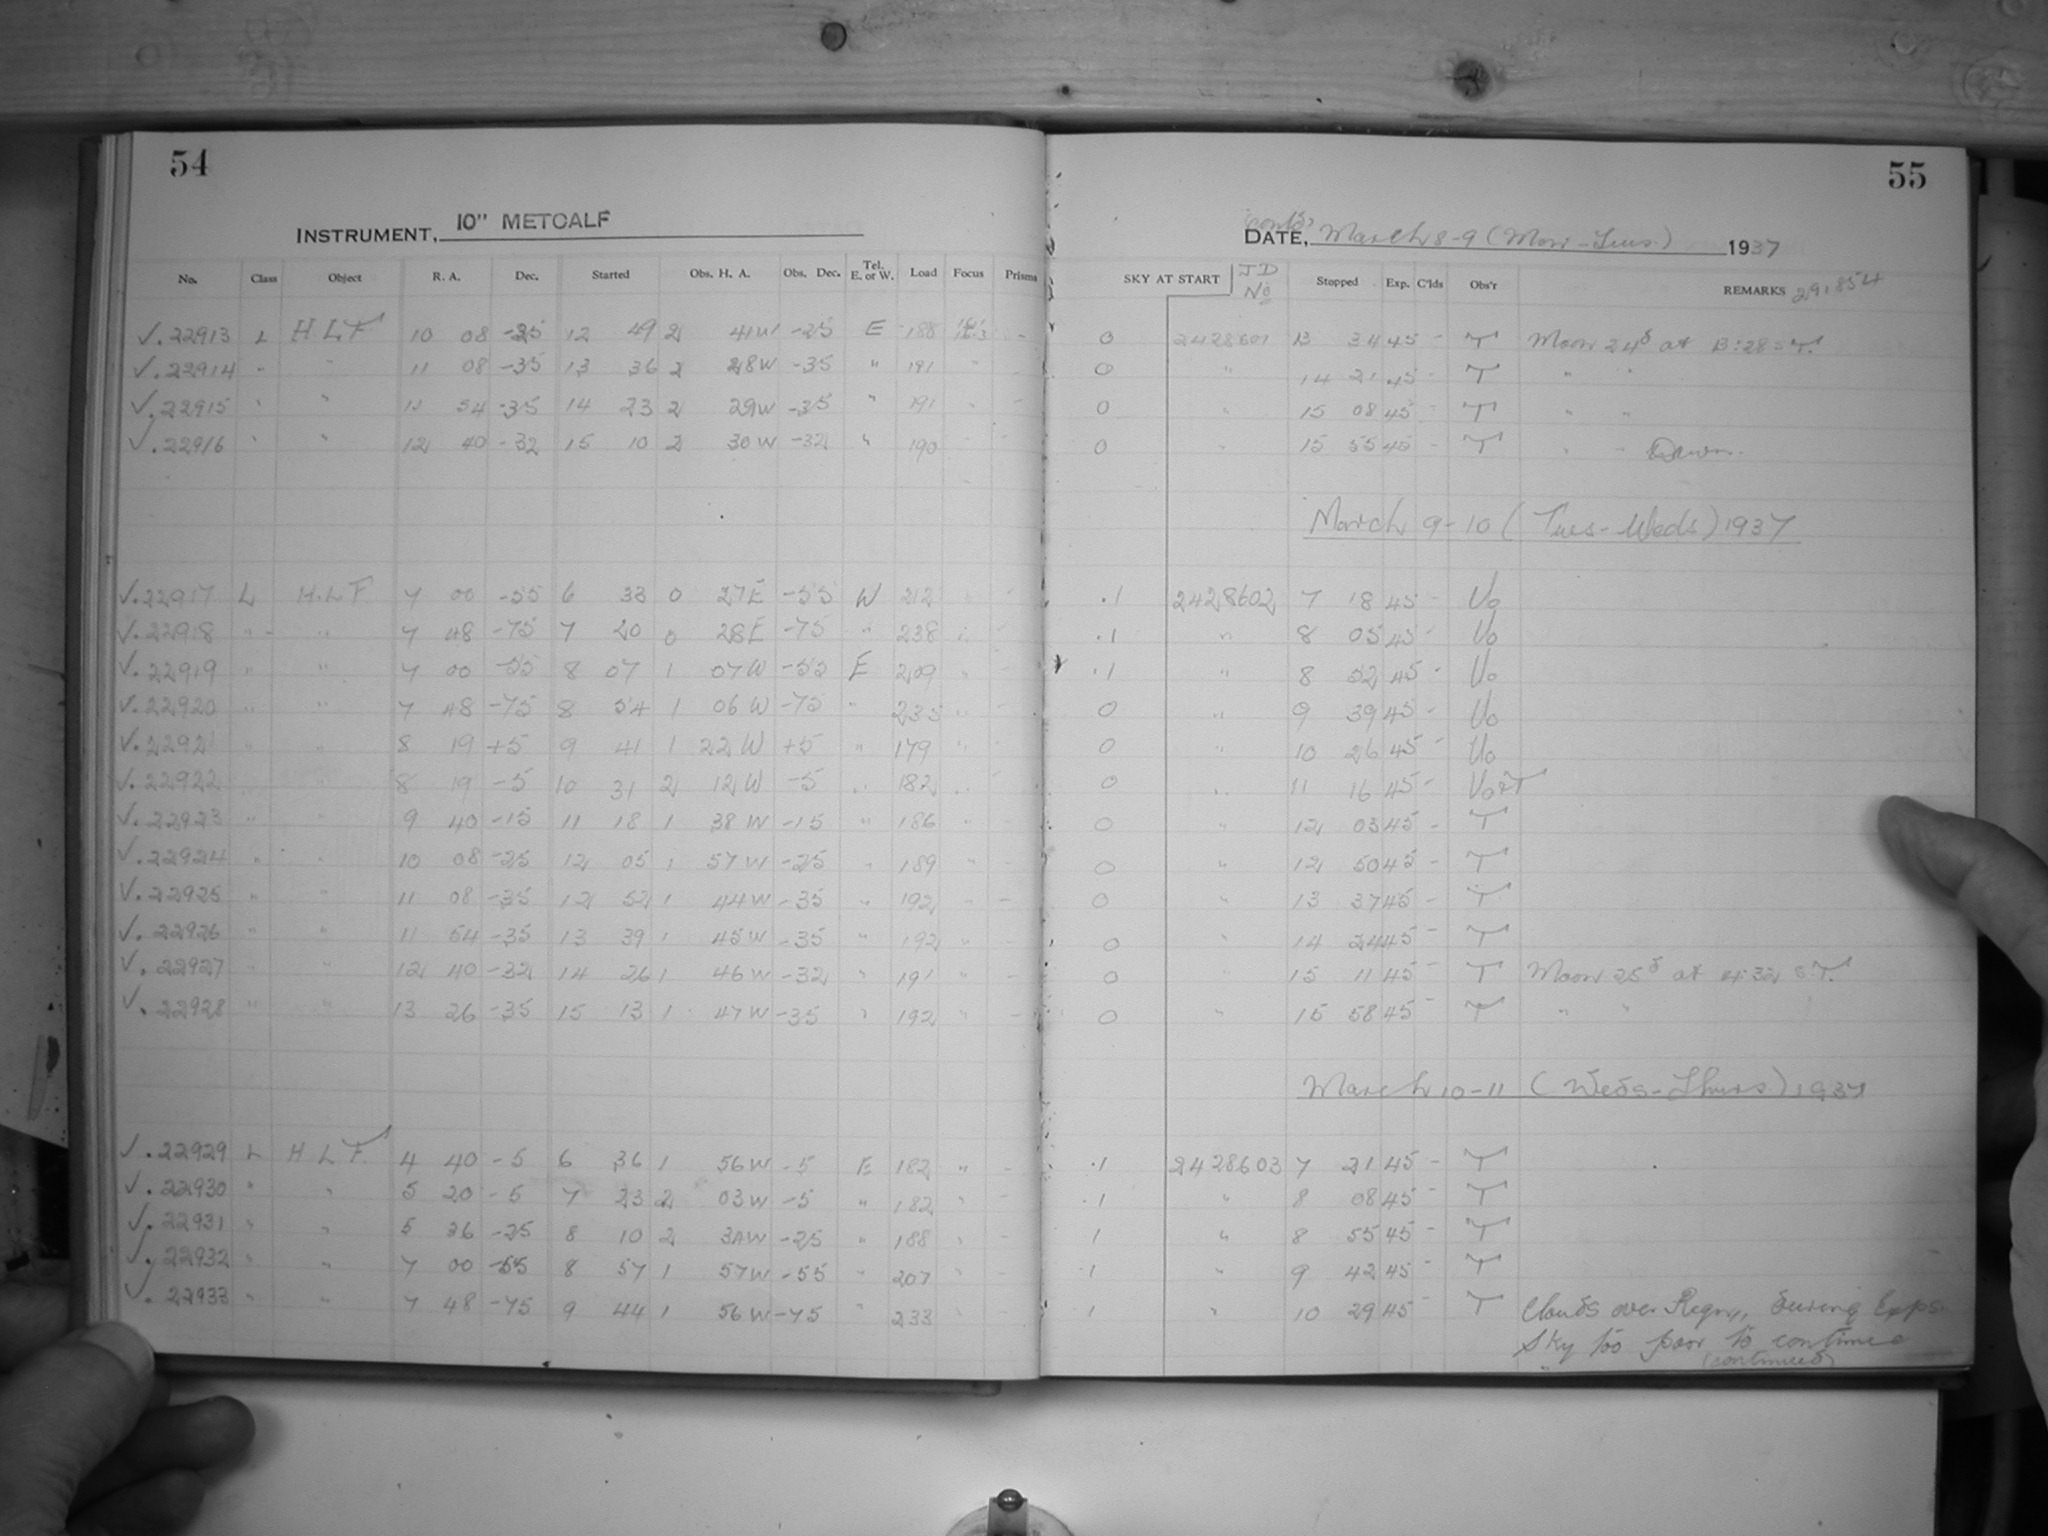 54
INSTRUMENT, 10" METCALF
No. Class Object R. A. Dec. Started Obs. H. A. Obs. Dec. Tel. E. or W. Load Focus Prisms
√.22913 L H.L.F 10 08 -25 12 49 2 41W -25 E 188 -
√.22914 " " 11 08 -35 13 36 2 28W -35 " 191
√.22915 " " 11 54 -35 14 23 2 29W -35 " 191
√.22916 " " 12 40 -32 15 10 2 30W -32 " 190
√.22917 L H.L.F 7 00 -55 6 33 0 27E -55 W 212
√.22918 " " 7 48 -75 7 20 0 28E -75 " 238
√.22919 " " 7 00 -55 8 07 1 07W -55 E 209
√.22920 " " 7 48 -75 8 54 1 06W -75 " 235
√.22921 " " 8 19 +5 9 41 1 22W +5 " 179
√.22922 " 8 19 -5 10 31 2 12W -5 " 182
√.22923 " " 9 40 -15 11 18 1 38W -15 " 186
√.22924 " " 10 08 -25 12 05 1 57W -25 " 189
√.22925 " 11 08 -35 12 52 1 44W -35 " 192
√.22926 " " 11 54 -35 13 39 1 45W -35 " 192
√.22927 " " 12 40 -32 14 26 1 46W -32 " 191
√.22928 " " 13 26 -35 15 13 1 47W -35 " 192
√.22929 L H L F. 4 40 -5 6 36 1 56W -5 E 182 " -
√.22930 " " 5 20 -5 7 23 2 03W -5 " 182
√.22931 " " 5 36 -25 8 10 2 34W -25 " 188
√.22932 " " 7 00 -55 8 57 1 57W -55 " 207
√.22933 " " 7 48 -75 9 44 1 56W -75 " 233
55
DATE, (contd) March 8-9 (Mon-Tues) 1937
SKY AT START JD No Stopped Exp. C'lds Obs'r REMARKS 291854
0 2428601 13 34 45 - T Moon 24d at 13:28 S.T.
0 " 14 21 45 - T " "
0 " 15 08 45 - T " "
0 " 15 55 45 - T " " Dawn.
March 9-10 (Tues-Weds) 1937
.1 2428602 7 18 45 - Vo
.1 " 8 05 45 - Vo
.1 " 8 52 45 - Vo
0 " 9 39 45 - Vo
0 " 10 26 45 - Vo
0 " 11 16 45 - Vo&T
0 " 12 03 45 - T
0 " 12 50 45 - T
0 " 13 37 45 - T
0 " 14 24 45 - T
0 " 15 11 45 - T Moon 25d at 14:32 S.T.
0 " 15 58 45 - T " "
March 10-11 (Weds-Thurs) 1937
.1 2428603 7 21 45 - T
.1 " 8 08 45 - T
1 " 8 55 45 - T
1 " 9 42 45 - T
1 " 10 29 45 - T Clouds over Region, during Exps.
Sky too poor to continue
(continued)